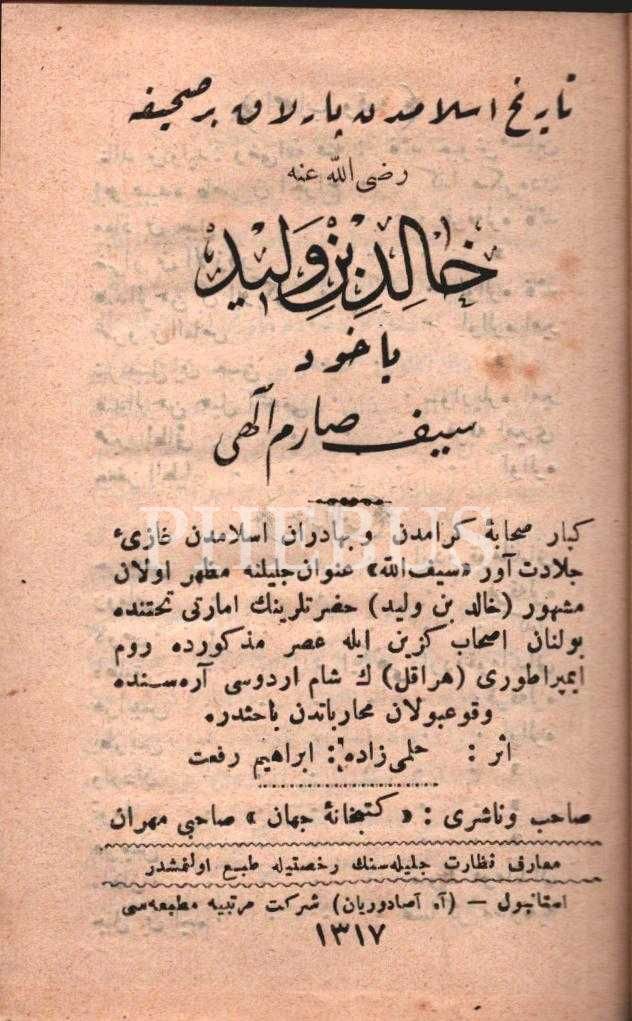 تاريخ اسلامدن پارلاق بر صحيفه
رضى الله عنه
خَالِدِ بْنِ وَلِيد
ياخود
سيف صارم آلهى
كبار صحابۀ كرامدن و بهادران اسلامدن غازئ
جلادت آور «سيف الله» عنوان جليلنه مظهر اولان
مشهور (خالد بن وليد) حضرتلرينك امارتى تحتنده
بولنان اصحاب كزين ايله عصر مذكورده روم
ايمپراطورى (هراقل) ك شام اردوسى آره‌سنده
وقوعبولان محارباتدن باحثدره
اثر : حلمى زاده : ابراهيم رفعت
صاحب وناشرى : « كتبخانۀ جهان » صاحبى مهران
معارف نظارت جليله‌سنك رخصتيله طبع اولنمشدر
استانبول — (آ. آصادوريان) شركت مرتبيه مطبعه‌سى
١٣١٧
PHEBUS